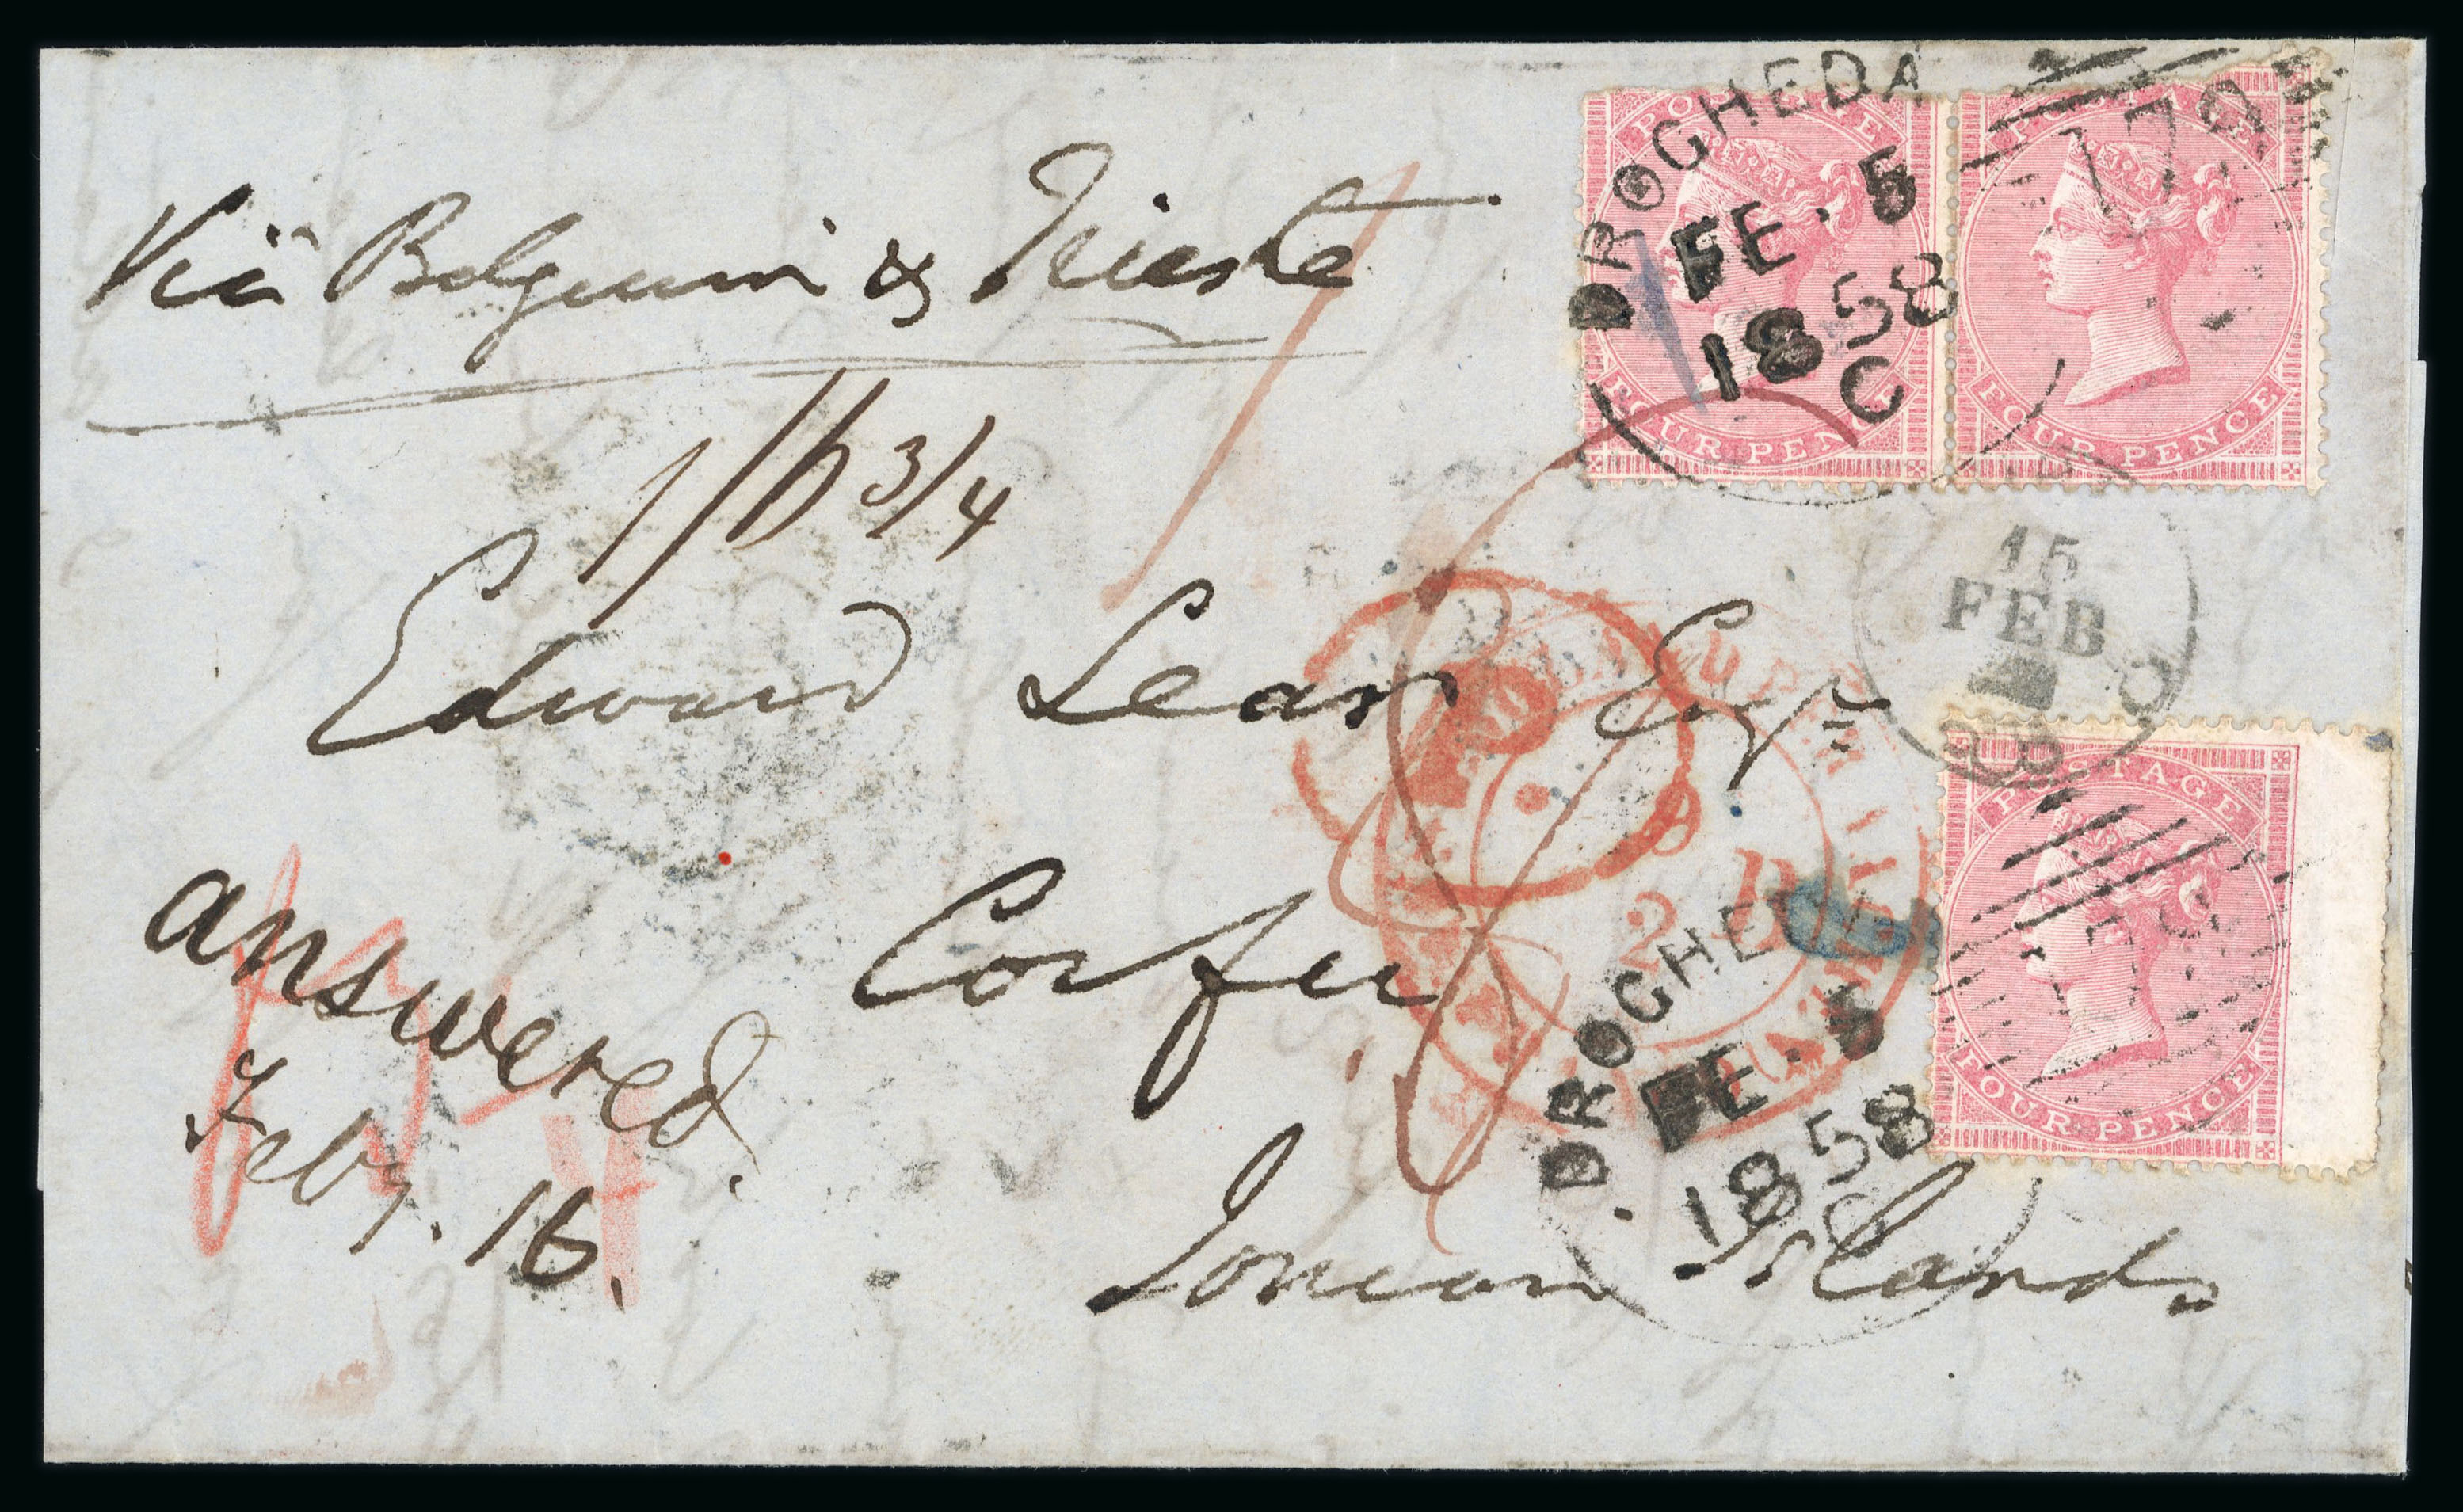 Via Belgium & Trieste
1/6 3/4
Edward Lear Esqre
Corfu
Ionian Islands
answered.
Feby. 16.
DROGHEDA
FE . 5
1858
C
POSTAGE
FOUR PENCE
POSTAGE
FOUR PENCE
179
15
FEB
POSTAGE
FOUR PENCE
179
DROGHEDA
FE . 5
1858
C